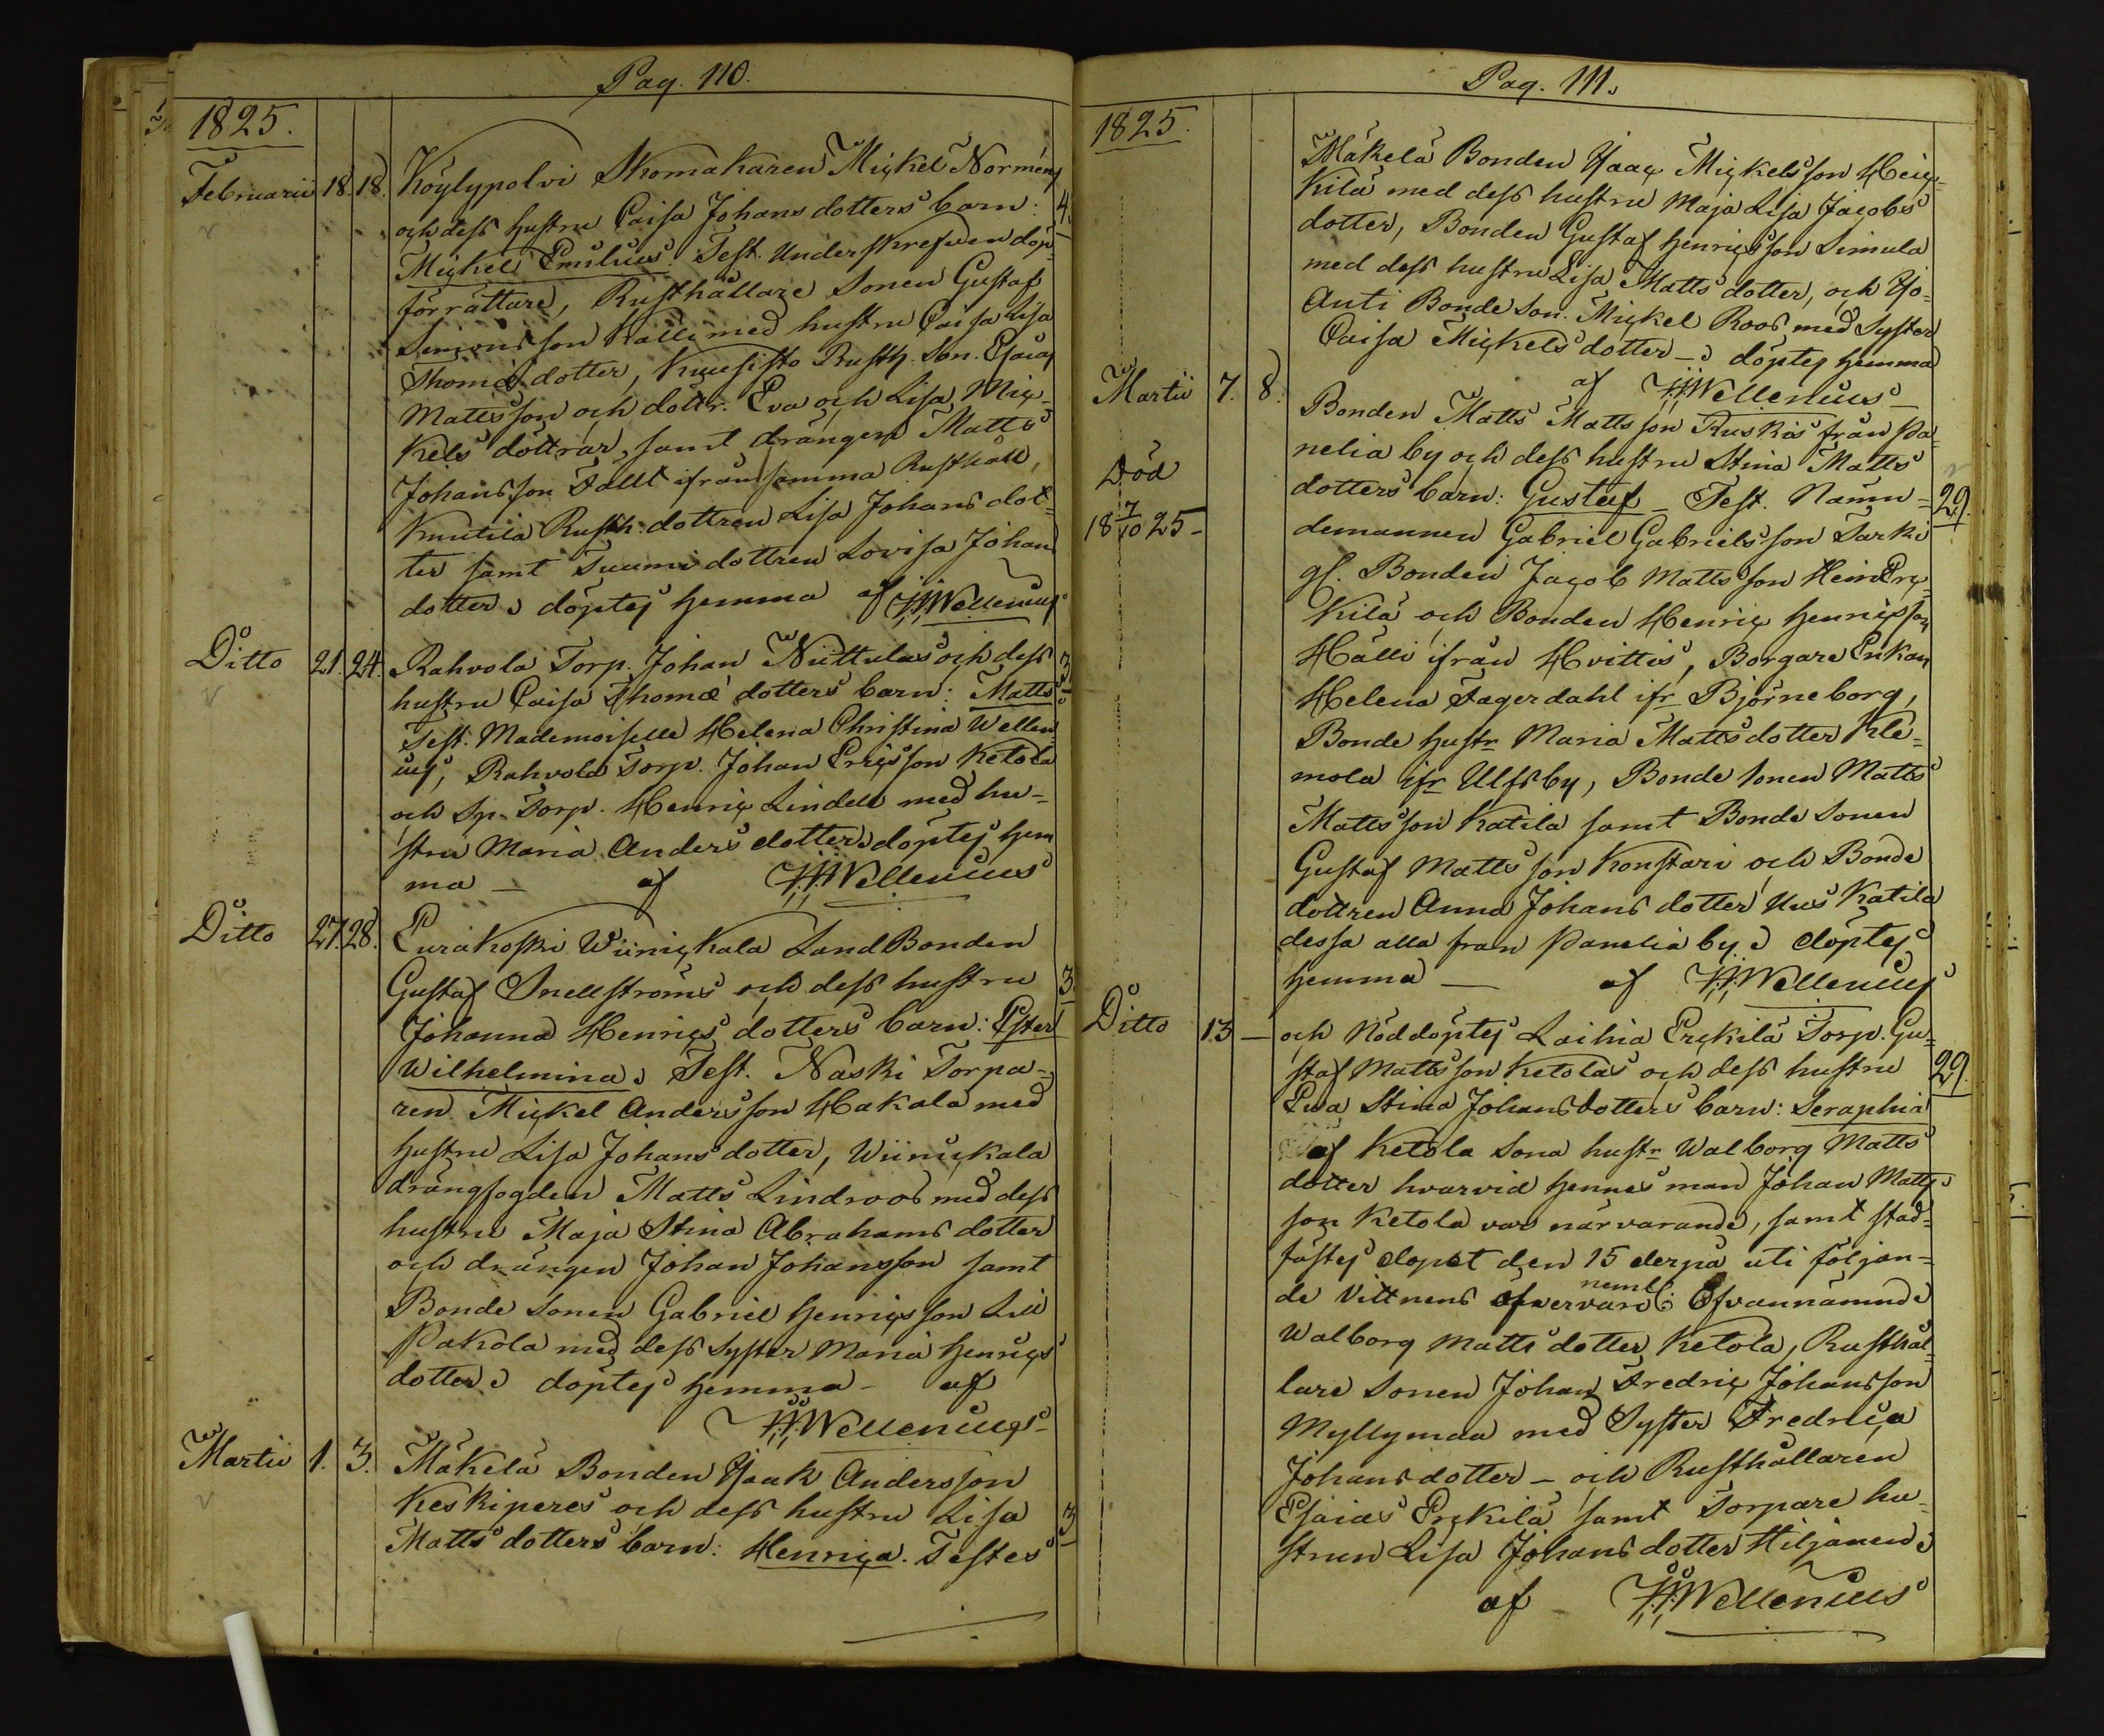 Pag. 110.
1825.
Februarii 18. 18. Köylypolvi Skomakaren Miçkel Norméns
och dess hustru Caisa Johans dotters barn: 4.
Miçkel Emilius. Test. Underskrefwen döp-
förrättare, Rusthållare Sonen Gustaf
Simons son Kalli med hustru Caisa Lisa
Thomæ dotter, Kuusisto Rusth. Son. Esaias
Matts son och dottr. Eva och Lisa Miç-
kels döttrar, samt drängen Matts
Johans son Fält ifrån samma Rusthåll,
Knutila Rusth: dottren Lisa Johans dot-
ter samt Tuumi dottren Lovisa Johans
dotter döptes hemma af H.H.Wellenius
Ditto 21. 24. Rahvola Torp. Johan Niittulas och dess 3
hustru Caisa Thomæ dotters barn: Matts
Test. Mademoiselle Helena Christina Wellen-
ius, Rahvola Torp. Johan Eriçs son Ketola
och Sp. Torp. Henriç Lindell med hu-
stru Maria Anders dotter döptes hem
ma — af H.H.Wellenius
Ditto 27. 28. Eurakoski Wiiniçkala Land Bonden
Gustaf Snellströms och dess hustru 3
Johanna Henriçs dotters barn: Ester
Wilhelmina Test. Naski Torpa-
ren Miçkel Anders son Hakala med
hustru Lisa Johans dotter, Wiiniçkala
drängfogden Matts Lindroos med dess
hustru Maja Stina Abrahams dotter
och drängen Johan Johansson samt
Bonde Sonen Gabriel Henriçs son Lill
Pakola med dess Syster Maria Henriçs
dotter döptes hemma — af
H.H.Wellenius
Martii 1. 3. Mäkelä Bonden Isaak Anders son
Keskiperes och dess hustru Lisa 3
Matts dotters barn: Henriça. Testes
Pag. 111.
1825.
Mäkelä Bonden Isaaç Miçkels son Heiç-
kilä med dess hustru Maja Lisa Jacobs
dotter, Bonden Gustaf Henriçs son Simula
med dess hustru Lisa Matts dotter, och Iso-
Anti Bonde Son. Miçkel Roos med Syster
Caisa Miçkels dotter — döptes hemma
af H.H.Wellenius
Martii 7. 8. Bonden Matts Matts son Ruskas från Pa-
nelia by och dess hustru Stina Matts
Död
dotters barn: Gustaf — Test. Nämn- 29.
18 7/10 25 —
demannen Gabriel Gabriels son Sarki
gl. Bonden Jacob Matts son Hein Erç-
kilä och Bonden Henriç Henriçs son
Hälli ifrån Hvittis, Borgare Enkan
Helena Fagerdahl ifr Björneborg,
Bonde hustr Maria Matts dotter Kle-
mola ifr Ulfsby, Bonde Sonen Matts
Matts son Katila samt Bonde Sonen
Gustaf Matts son Konstari och Bonde
dottren Anna Johans dotter Uus Katila
dessa alla från Panelia by döptes
hemma — af H.H.Wellenius
Ditto 13 — och Nöddöptes Laihia Erçkilä Torp. Gu-
staf Matts son Ketolas och dess hustru 29.
Ewa Stina Johans dotters barn: Seraphia
af Ketola Sona hustr Walborg Matts
dotter hvarvid hennes man Johan Matts
son Ketola var närvarande, samt stad-
fästes dopet den 15 derpå uti följan-
de Vittnens öfwervaro neml: Ofvannämnde
Walborg Matts dotter Ketola, Rusthål-
lare Sonen Johan Fredriç Johans son
Myllymaa med Syster Fredriça
Johans dotter — och Rusthållaren
Esaias Erçkilä samt Torpare hu-
strun Lisa Johans dotter Hiljanen
af H.H.Wellenius